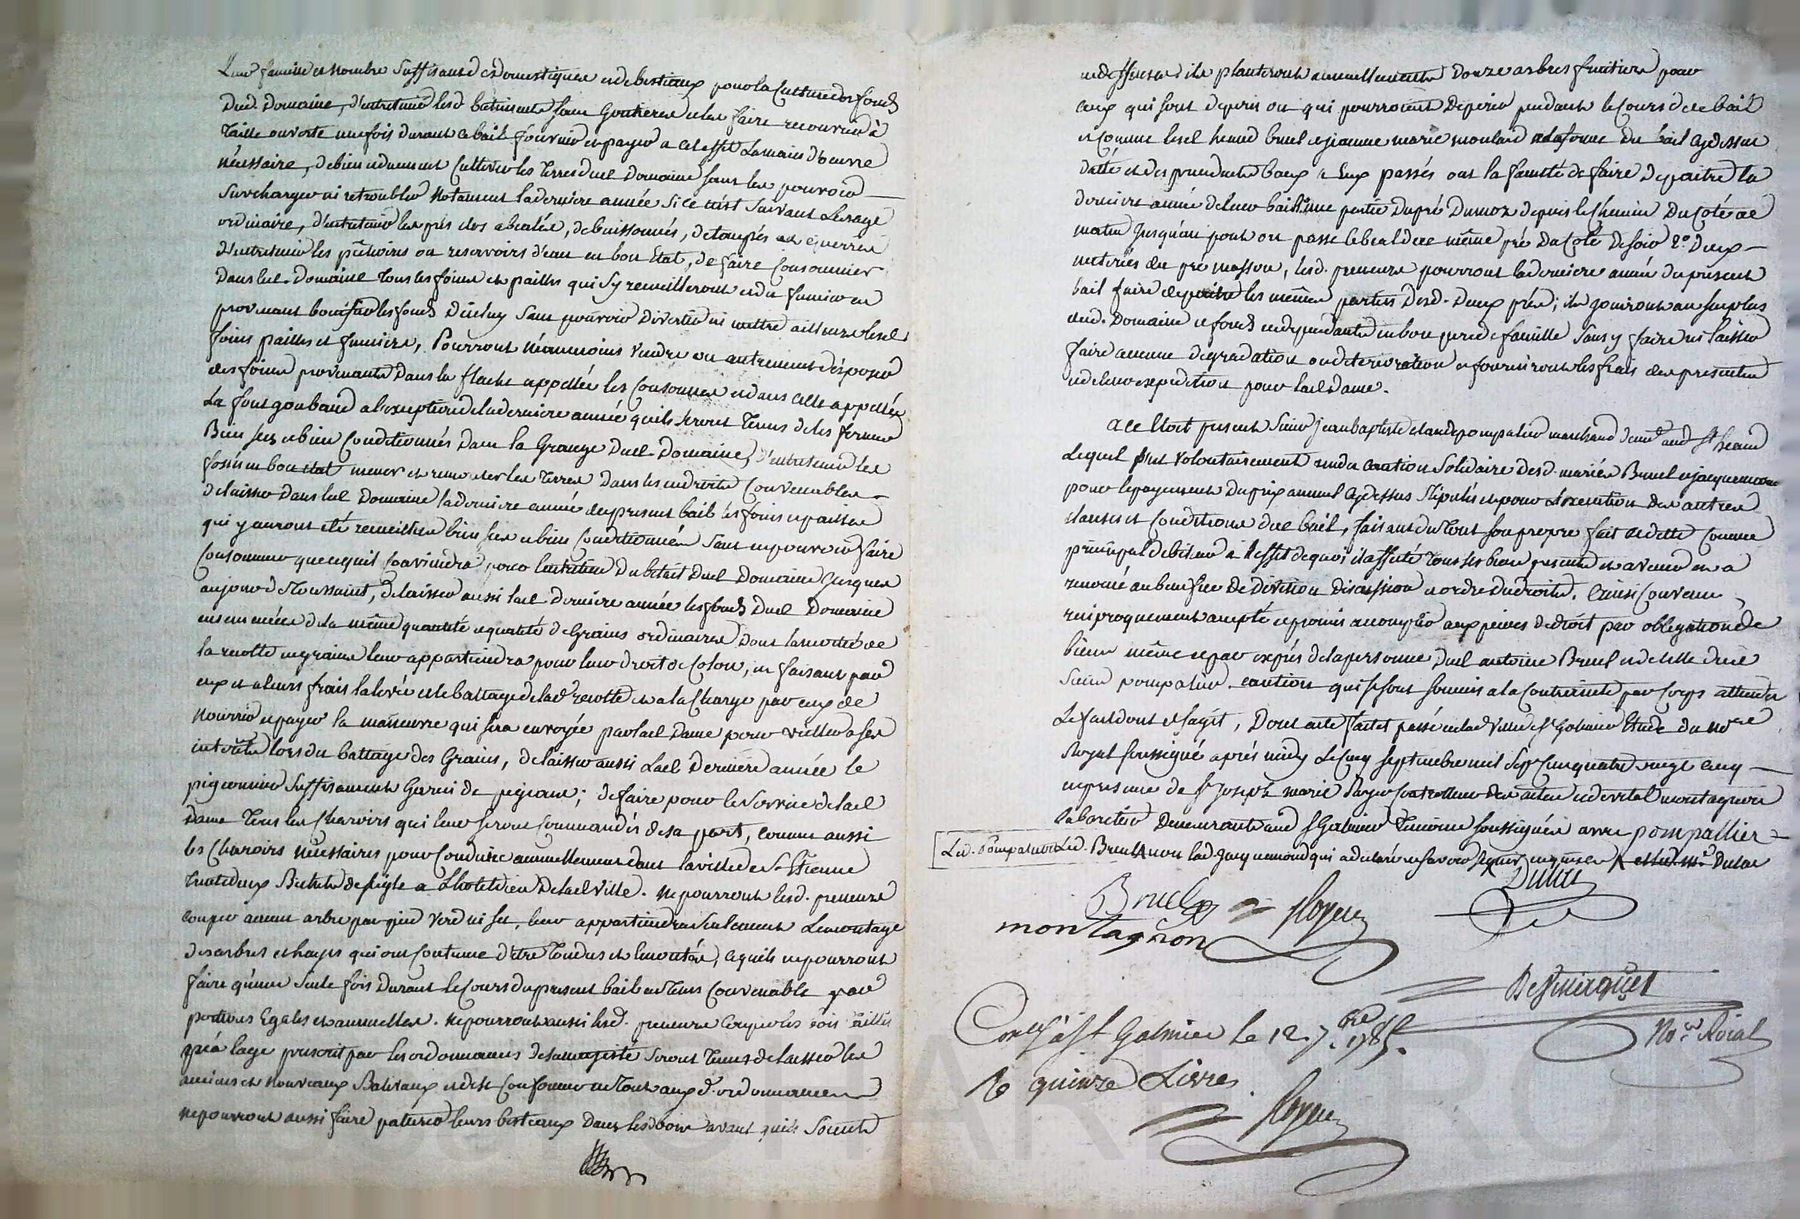 Leur famille et nombre suffisant de domestiques et de bestiaux pour la Culture des fonds
Dud. Domaine, d'entretenir lesd. batiments sans Goutieres et les faire recouvrir à
Taille ouverte une fois durant ce bail fournir et payer a cet effet La main d'oeuvre
nécessaire, de bien et duement Cultiver les Terres dud. Domaine sans les pouvoir
Surcharger ni retroubler notament la derniere année Si ce n'est Suivant L'usage
ordinaire, d'entretenir les prés clos a bealer, de buissonnés, de taupés et
d'entretenir les pêcheries ou reservoirs d'eau en bon Etat, de faire Consommer
Dans led. Domaine Tous les foins et pailles qui s'y recueilleront et du fumier en
provenant bonifier les fonds d'iceluy Sans pouvoir Divertir ni mettre ailleurs lesd.
foins pailles et fumiers, Pourront néanmoins vendre ou autrement disposer
des foins provenants Dans la appellée les et dans celle appellée
La font goubaud a l'exception de la derniere année qu'ils seront Tenus de les fermer
Bien secs et bien Conditionnés Dans la Grange Dud. Domaine, d'entretenir les
fossés en bon etat mener et remonter les Terres Dans les endroits Convenables
de laisser dans led. Domaine la derniere année du present bail les foins et pailles
qui y auront été recueillies bien secs et bien Conditionnés Sans en pouvoir faire
Consommer que ce qu'il Conviendra pour l'entretien Du betail Dud. Domaine Jusques
au jour de Toussaint, de laisser aussi lad. derniere année les fonds Dud. Domaine
ensemencés de la même quantité et qualité de Grains ordinaires Dont la moitié de
la recolte en grains leur appartiendra pour leur droit de Colon, en faisant par
eux et a leurs frais la levée et le battage de lad. recolte et a la Charge par eux de
Nourrir et payer la manoeuvre qui sera envoyée par lad. Dame pour veiller a ses
interêts lors du battage des Grains, de laisser aussi Lad. Derniere année le
pigeonnier Suffisament Garni de pigeons; de faire pour le Service de lad.
Dame Tous les Charrois qui leur seront Commandés de sa part, comme aussi
les Charrois nécessaires pour Conduire annuellement dans la ville de St. Etienne
Bichets de seigle a L'hotel Dieu De lad. Ville. Ne pourront lesd. preneurs
couper aucun arbre par pied verd ni sec, leur appartiendra Seulement L'emontage
des arbres et hayes qui ont Coutume d'être Tondus et emontés, ce qu'ils ne pourront
faire qu'une Seule fois Durant le Cours du present bail en Tems Convenable par
portions Egales et annuelles. Ne pourront aussi lesd. preneurs Couper les bois Taillis
qu'a l'age prescrit par les ordonnances de sa majesté Seront Tenus de laisser les
anciens et nouveaux Baliveaux et de se Conformer en Tout aux d. ordonnances
ne pourront aussi faire paturer leurs bestiaux Dans lesd. bois avant qu'ils Soient
en deffense ils planteront annuellement Douze arbres fruitiers pour
ceux qui sont deperis ou qui pourroient Deperir pendant le Cours de ce bail
et Comme lesd. Breul et jeanne marie moulard Du bail cy dessus
datté et des precedents baux a Eux passés ont la faculté de faire Depaitre la
derniere année de leur bail 1° une partie Du pré Dumoz depuis le Chemin Du Coté de
matin Jusqu'au pont ou passe le beal de ce même pré Du Coté de soir 2° Deux
meteries du pré masson, lesd. preneurs pourront la derniere année du present
bail faire depaitre les mêmes parties Desd. Deux prés; ils jouiront au surplus
dud. Domaine et fonds en dependants en bon pere de famille Sans y faire ni laisser
faire aucune degradation ou deterioration et fourniront les frais des presentes
et de leur expedition pour lad. dame.
A ce Etoit present Sieur Jean baptiste Claude pompalier marchand Demt. aud. St. heand
Lequel s'est volontairement rendu Caution Solidaire desd. mariés Breul et jacquemond
pour le payement Du prix annuel cy dessus Stipulé et pour L'execution des autres
clauses et Conditions du bail, faisant du Tout son propre fait et dette Comme
principal debiteur a l'effet de quoi il a affecté Tous ses biens presents et avenir et a
renoncé au benefice De Division Discussion et ordre de droits. Ainsi Convenu,
reciproquement accepté et promis accomplir aux peines de droit par obligation de
biens même et par exprés de la personne Dud. antoine Breul et de celle du d.
Sieur pompalier caution qui se sont soumis a la Contrainte par Corps attendu
Le fait dont il s'agit, Dont acte fait et passé en lad. Ville St. Galmier Etude du nore.
Royal soussigné aprés midy Le Cinq septembre mil Sept Cens quatre vingt cinq
en presence de Sr. Joseph marie Royer Controlleur des actes et de vital montagnon
Cabaretier Demeurants aud. St. Galmier Temoins soussignés avec pompallier
Led. Pompalier Led. Breul non lad. jacquemond qui a declaré ne savoir signer enquise et led. Me. Dulac
Breul Royer
Dulac
montagnon
Desmarquet
Nore. Roial
Conlé. à St. Galmier le 12. 7bre 1785.
R. quinze Livres
Royer